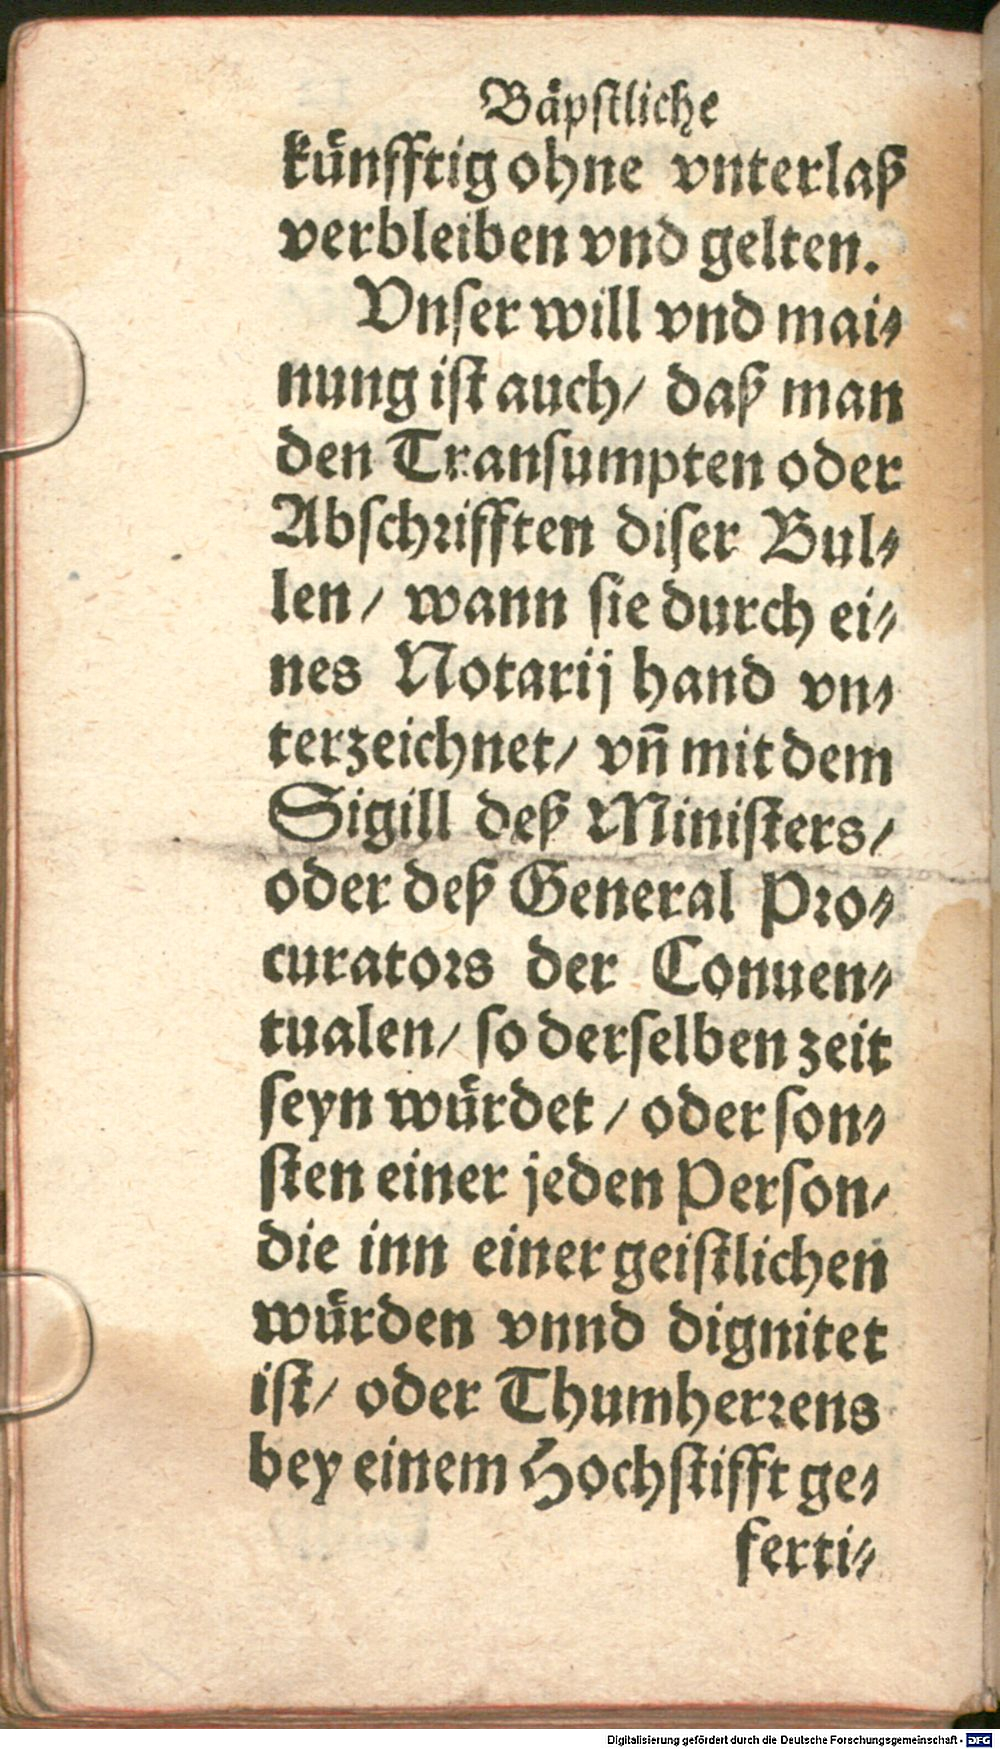 Bäpſtliche
künfftig ohne vnterlaß
verbleiben vnd gelten.
Vnſer will vnd mai⸗
nung iſt auch/ daß man
den Tranſumpten oder
Abſchrifften diſer Bul⸗
len/ wann ſie durch ei⸗
nes Notarij hand vn⸗
terzeichnet/ vñ mit dem
Sigill deß Miniſters/
oder deß General Pro⸗
curators der Conuen⸗
tualen/ ſo derſelben zeit
ſeyn würdet/ oder ſon⸗
ſten einer jeden Perſon/
die inn einer geiſtlichen
würden vnnd dignitet
iſt/ oder Thumherrens
bey einem Hochſtifft ge⸗
ferti⸗
Digitalisierung gefördert durch die Deutsche Forschungsgemeinschaft - DFG